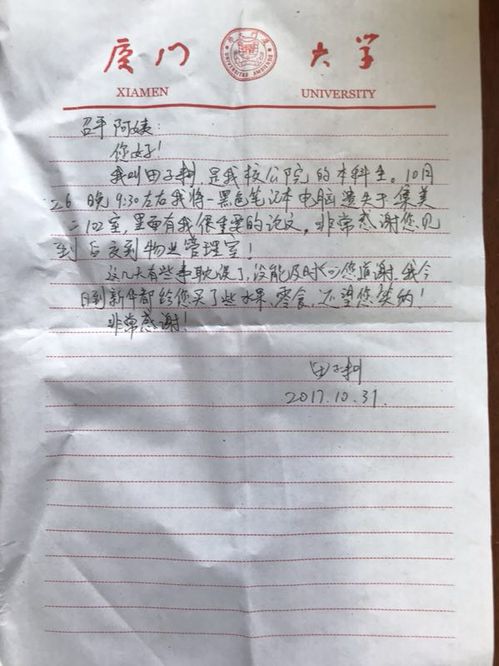 厦门大学
XIAMEN UNIVERSITY
召平阿姨:
你好!
我叫田子利 是我校公院的本科生。10月
26晚9:30左右我将一黑色笔记本电脑遗失于集美
二102室,里面有我很重要的论文,非常感谢您见
到后交到物业管理室!
这几天有些事耽误了,没能及时向您道谢,我今
日到新华都给您买了些水果、零食,还望您笑纳!
非常感谢!
田子利
2017.10.31.